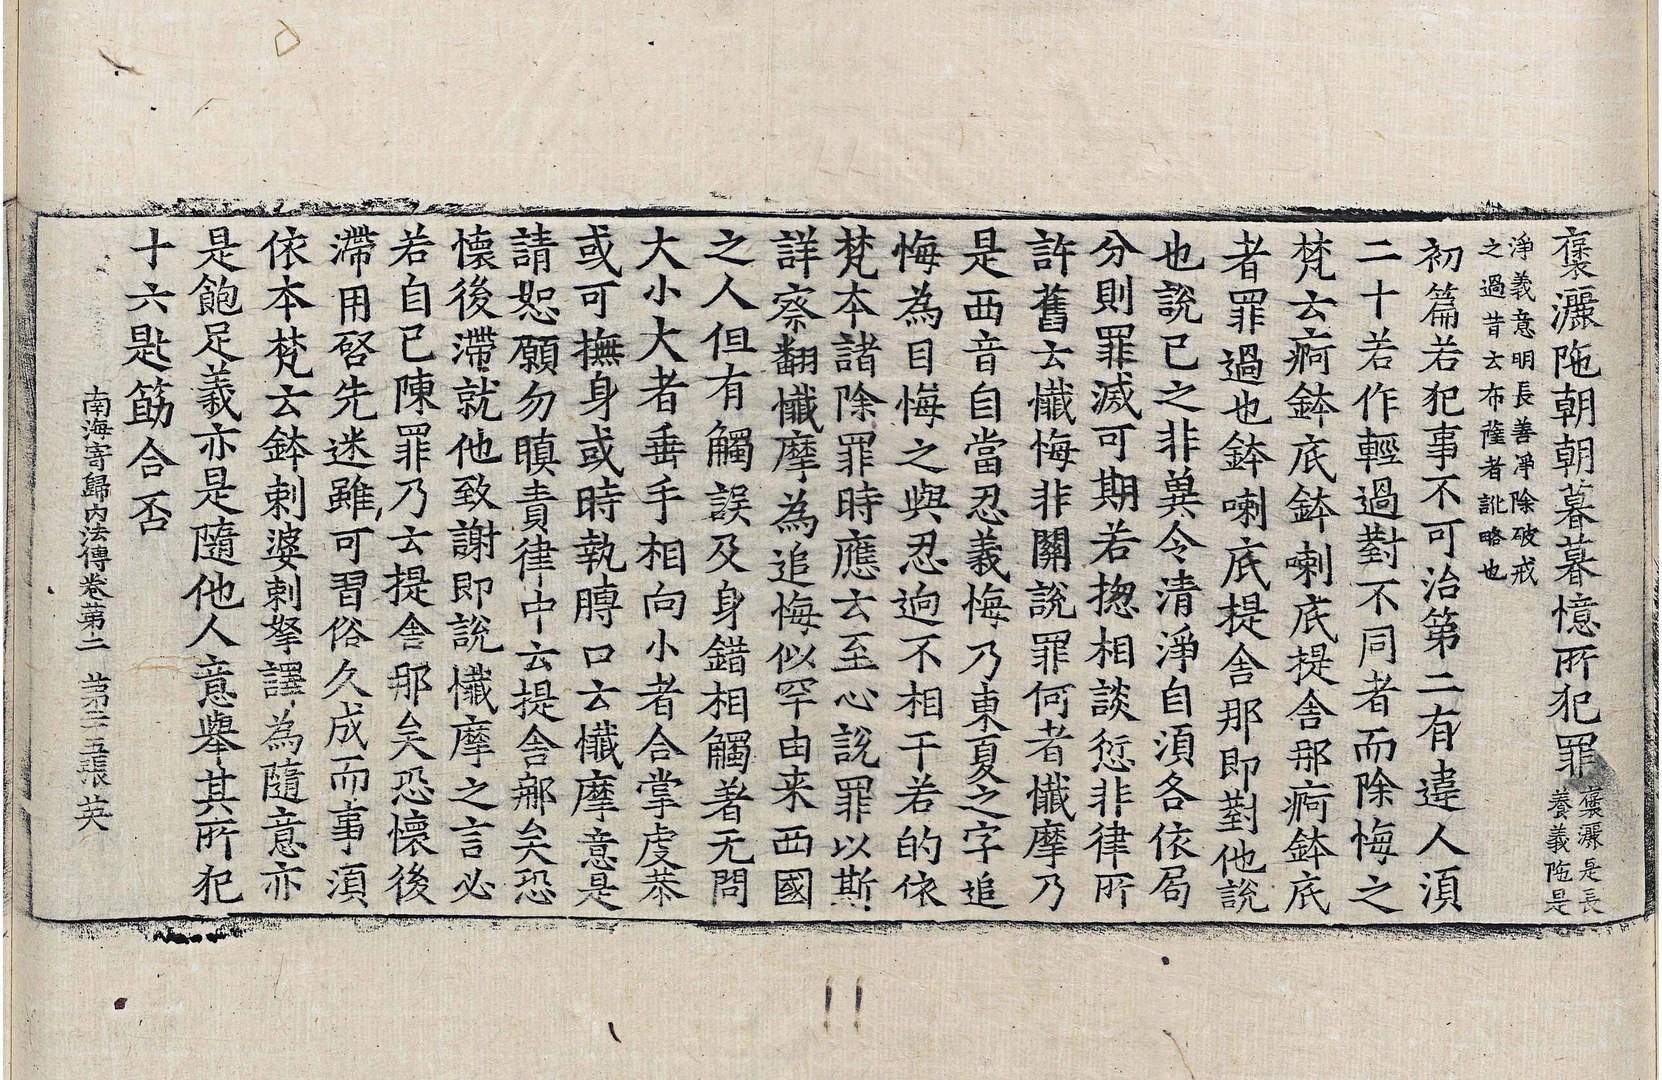 褒灑陁朝朝暮暮憶所犯罪褒灑是長養義陁是
淨義意明長善淨除破戒之過昔云布薩者訛略也
初篇若犯事不可治第二有違人湏
二十若作輕過對不同者而除悔之
梵云痾鉢底鉢喇底提舍那痾鉢底
者罪過也鉢喇底提舍那即對他說
也說已之非兾令清淨自湏各依局
分則罪滅可期若揔相談愆非律所
許舊云懺悔非關說罪何者懺摩乃
是西音自當忍義悔乃東夏之字追
悔為目悔之與忍迥不相干若的依
梵本諸除罪時應云至心說罪以斯
詳察翻懺摩為追悔似罕由来西國
之人但有觸誤及身錯相觸著无問
大小大者垂手相向小者合掌虔恭
或可撫身或時執膊口云懺摩意是
請恕願勿瞋責律中云提舍那矣恐
懷後滯就他致謝即說懺摩之言必
若自已陳罪乃云提舍那矣恐懷後
滯用啓先迷雖可習俗久成而事湏
依本梵云鉢剌婆剌拏譯為隨意亦
是飽足義亦是隨他人意舉其所犯
十六匙筯合否
南海寄歸內法傳卷苐二　苐二十五張　英